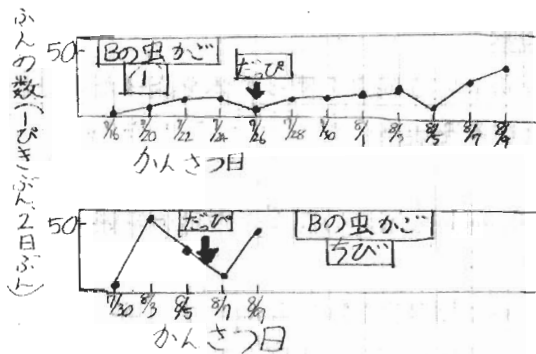 ふんの数(一ぴきぶん、2日ぶん)
50
Bの虫かご
(1)
だっぴ
7/16 7/20 7/22 7/24 7/26 7/28 7/30 8/1 8/3 8/5 8/7 8/9
かんさつ日
50
だっぴ
Bの虫かご
ちび
7/30 8/3 8/5 8/7 8/9
かんさつ日